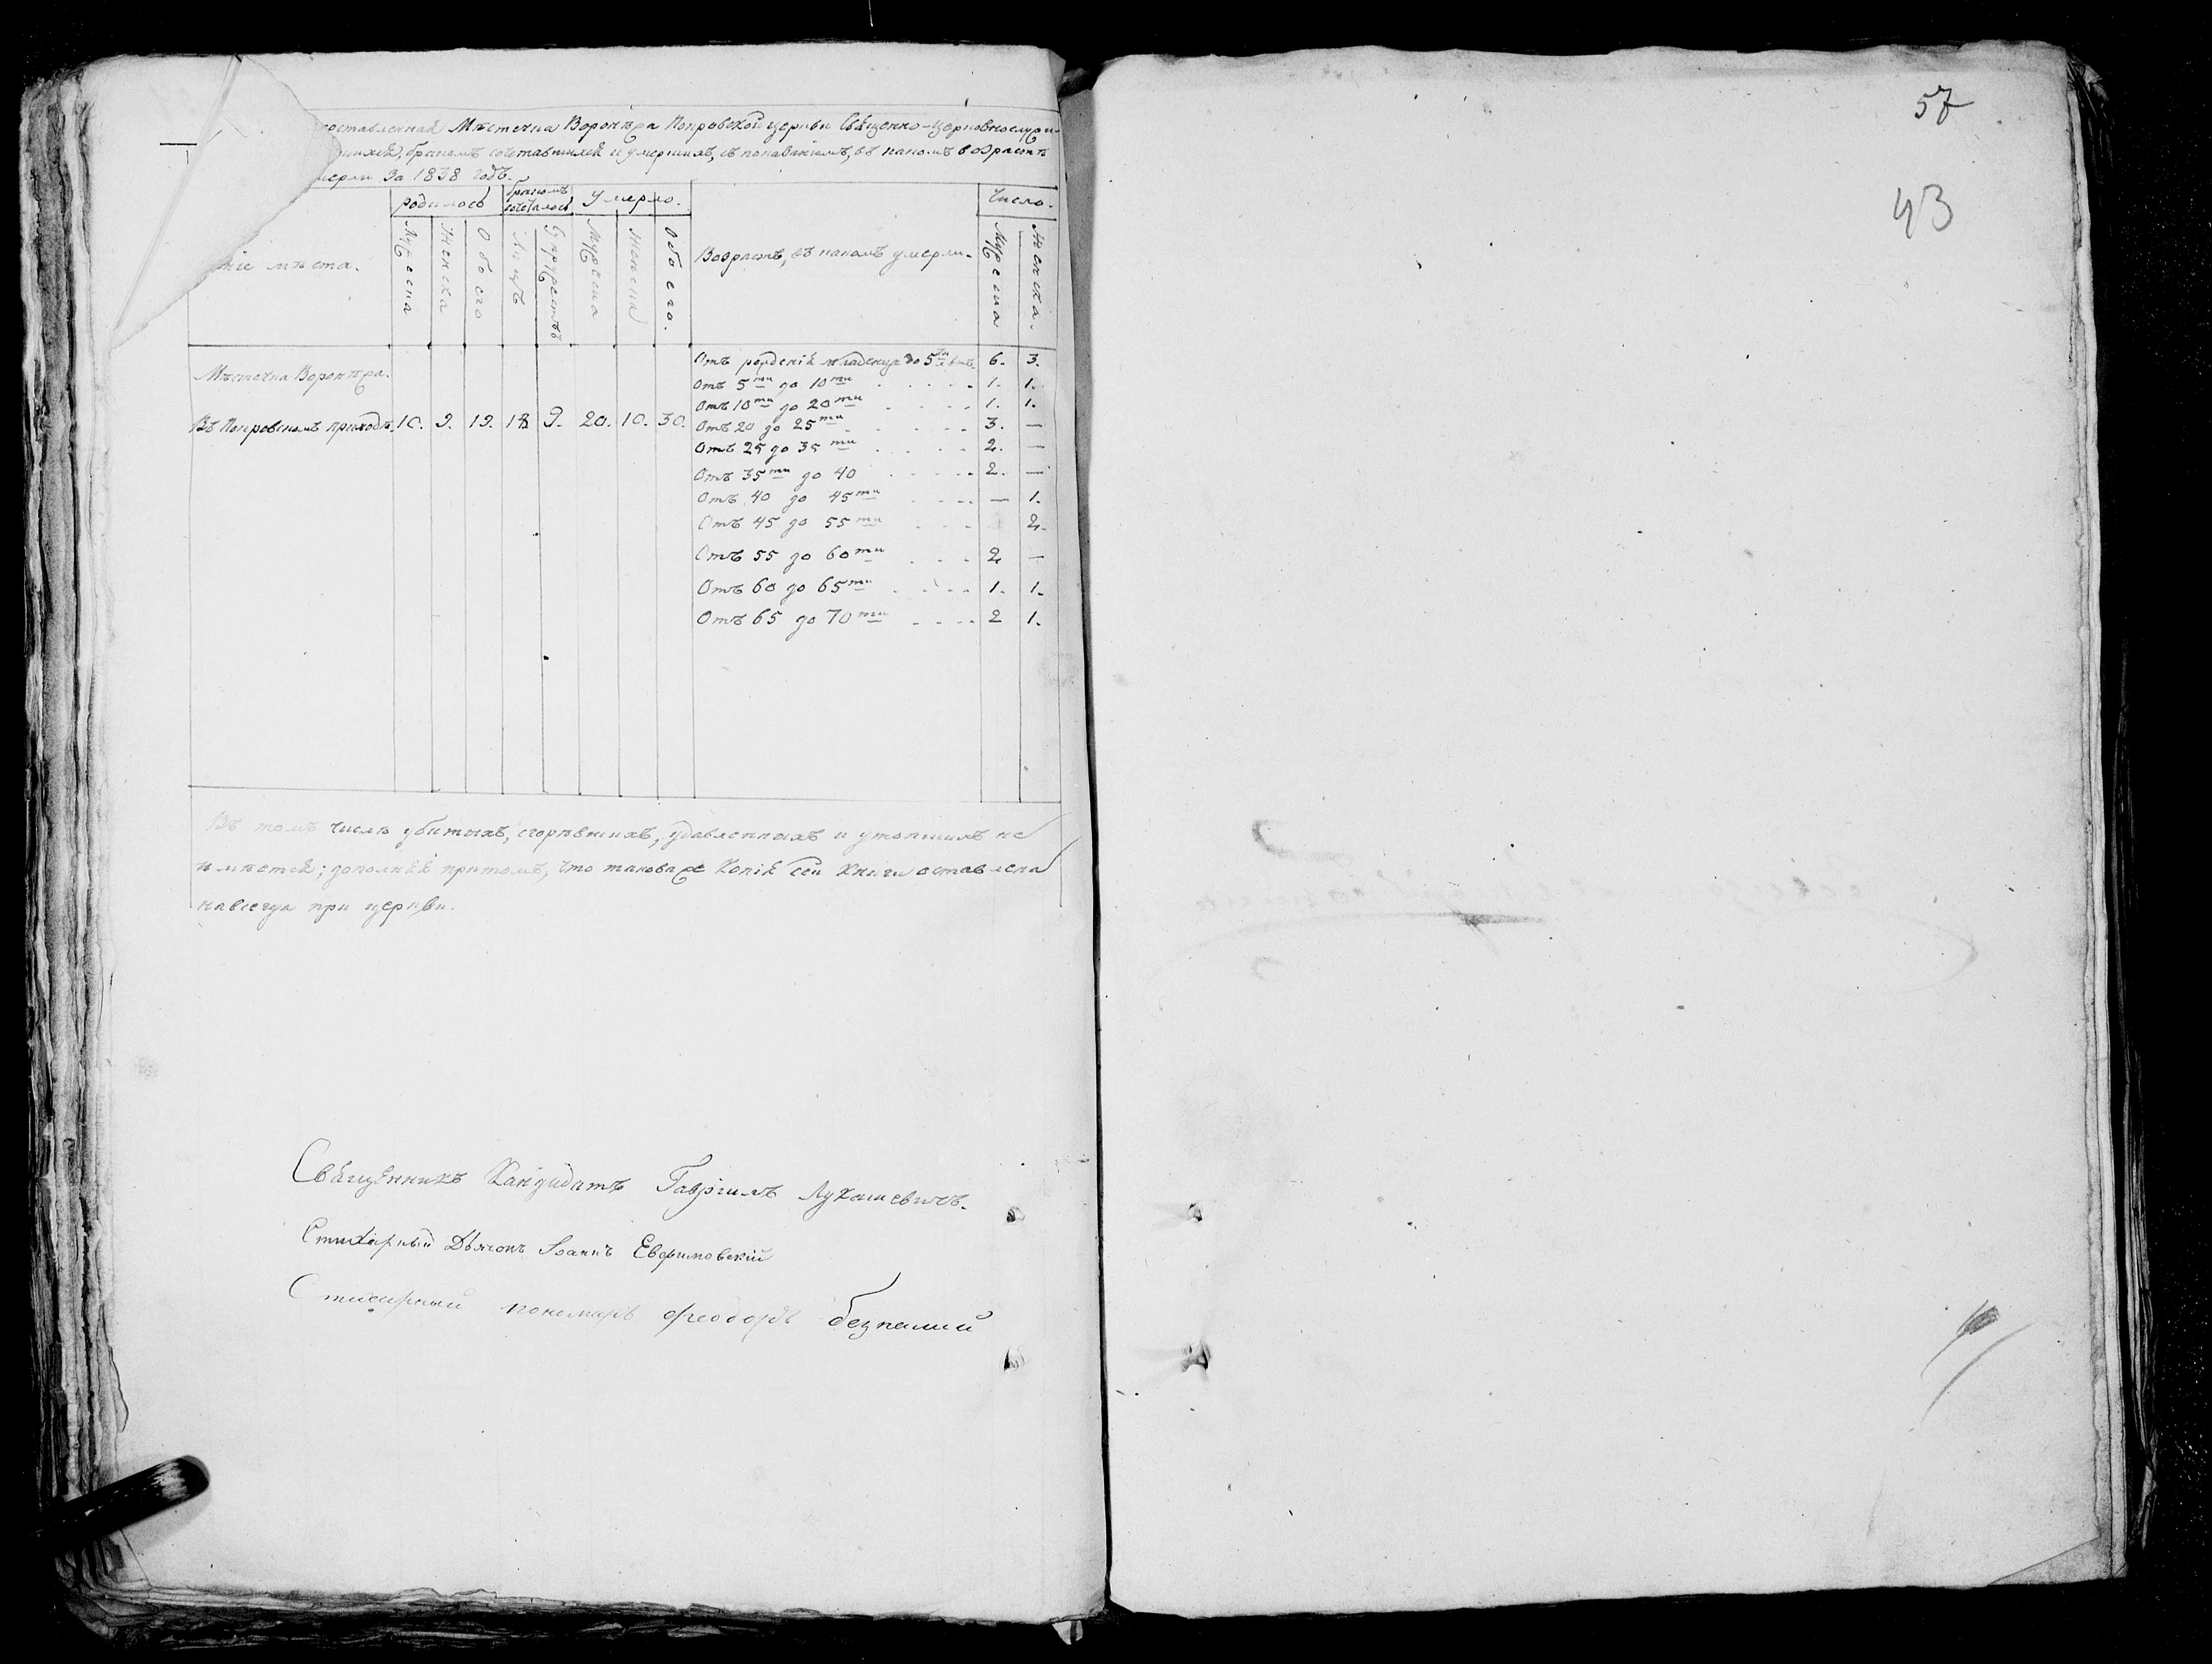 составленная Мѣстечка Воронѣжа Покровской церкви Священно-Церковнослужи-
шихся, бракомъ сочетавшихся и умершихъ, съ показаніемъ, въ какомъ возрастѣ
мерли за 1838 годъ.
родилось бракомъ сочеталось Умерло. Число.
Мужеска Женска Обоего Лицъ Супружествъ Мужеска Женска Обоего. Возрастъ, въ какомъ умерли. Мужеска Женска.
мѣста.
Мѣстечка Воронѣжа.
Въ Покровскомъ приходѣ. 10. 9. 19. 18 9. 20. 10. 30.
Отъ рожденія младенца до 5ти лѣтъ. 6. 3.
Отъ 5ти до 10ти 1. 1.
Отъ 10ти до 20ти 1. 1.
Отъ 20 до 25ти 3. —
Отъ 25 до 35ти 2. —
Отъ 35ти до 40 2. —
Отъ 40 до 45ти — 1.
Отъ 45 до 55ти 2.
Отъ 55 до 60ти 2 —
Отъ 60 до 65ти 1. 1.
Отъ 65 до 70ти 2 1.
Въ томъ числѣ убитыхъ, сгорѣвшихъ, удавленныхъ и утопшихъ не
имѣется; дополняя притомъ, что таковаже Копія сей Книги оставлена
навсегда при церкви.
Священникъ Кандидатъ Гавріилъ Лукашевичъ.
Стихарный Дьячокъ Іоаннъ Евфимовскій
Стихарный пономарь Феодоръ Безпалий
57
43